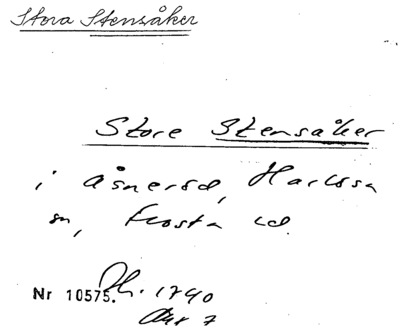 Stora Stensåker
Store Stensåker
i Åsnersd, Harlssa
sn, Frosta hd.
Nr 10575. Dh. 1790
Akt 7